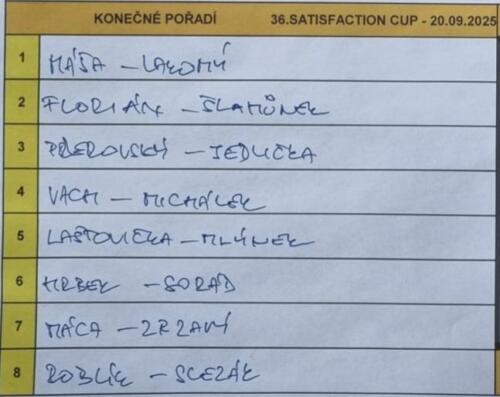 KONEČNÉ POŘADÍ 36.SATISFACTION CUP - 20.09.2025
1 MÁŠA – LAKOMÝ
2 FLORIÁN – ŠLAMŮNEK
3 PŘEROVSKÝ – JEDLIČKA
4 VACH – MICHÁLEK
5 LAŠTOVIČKA – MLÝNEK
6 HRBEK – SORÁD
7 MÁCA – ZRZAVÝ
8 ROBLÍK – SLEZÁK